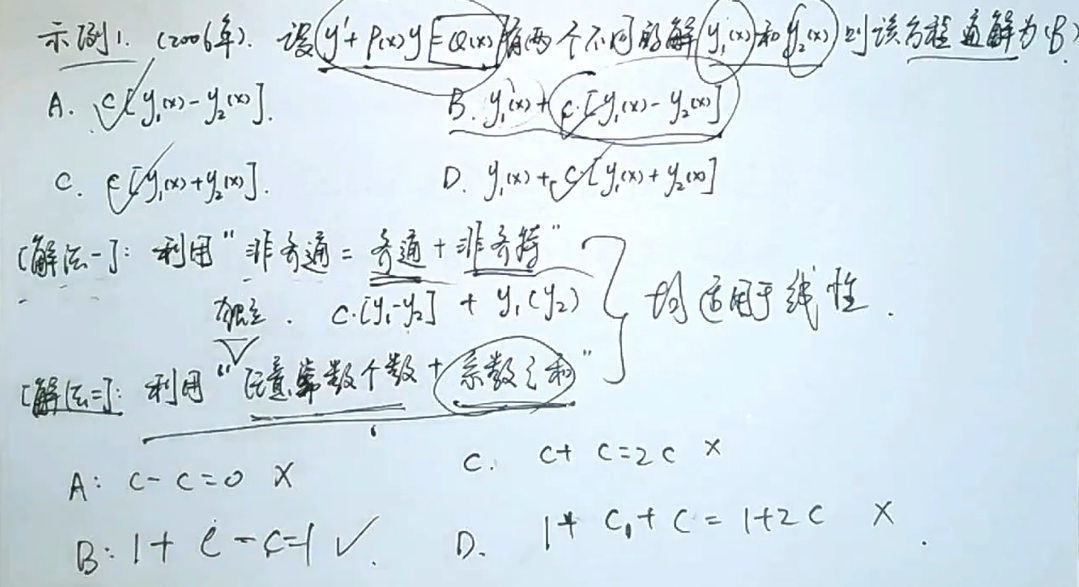 示例1. (2006年). 设y'+P(x)y=Q(x)有两个不同的解y₁(x)和y₂(x)则该方程通解为(B)
A. C[y₁(x)-y₂(x)]. B. y₁(x)+C·[y₁(x)-y₂(x)]
C. C[y₁(x)+y₂(x)]. D. y₁(x)+C[y₁(x)+y₂(x)]
[解法一]: 利用"非齐通=齐通+非齐特"
C·[y₁-y₂] + y₁(y₂)
均适用于线性.
独立
[解法二]: 利用"任意常数个数+系数之和"
A: C-C=0 X C. C+C=2C X
B: 1+C-C=1 ✓. D. 1+C₁+C=1+2C X